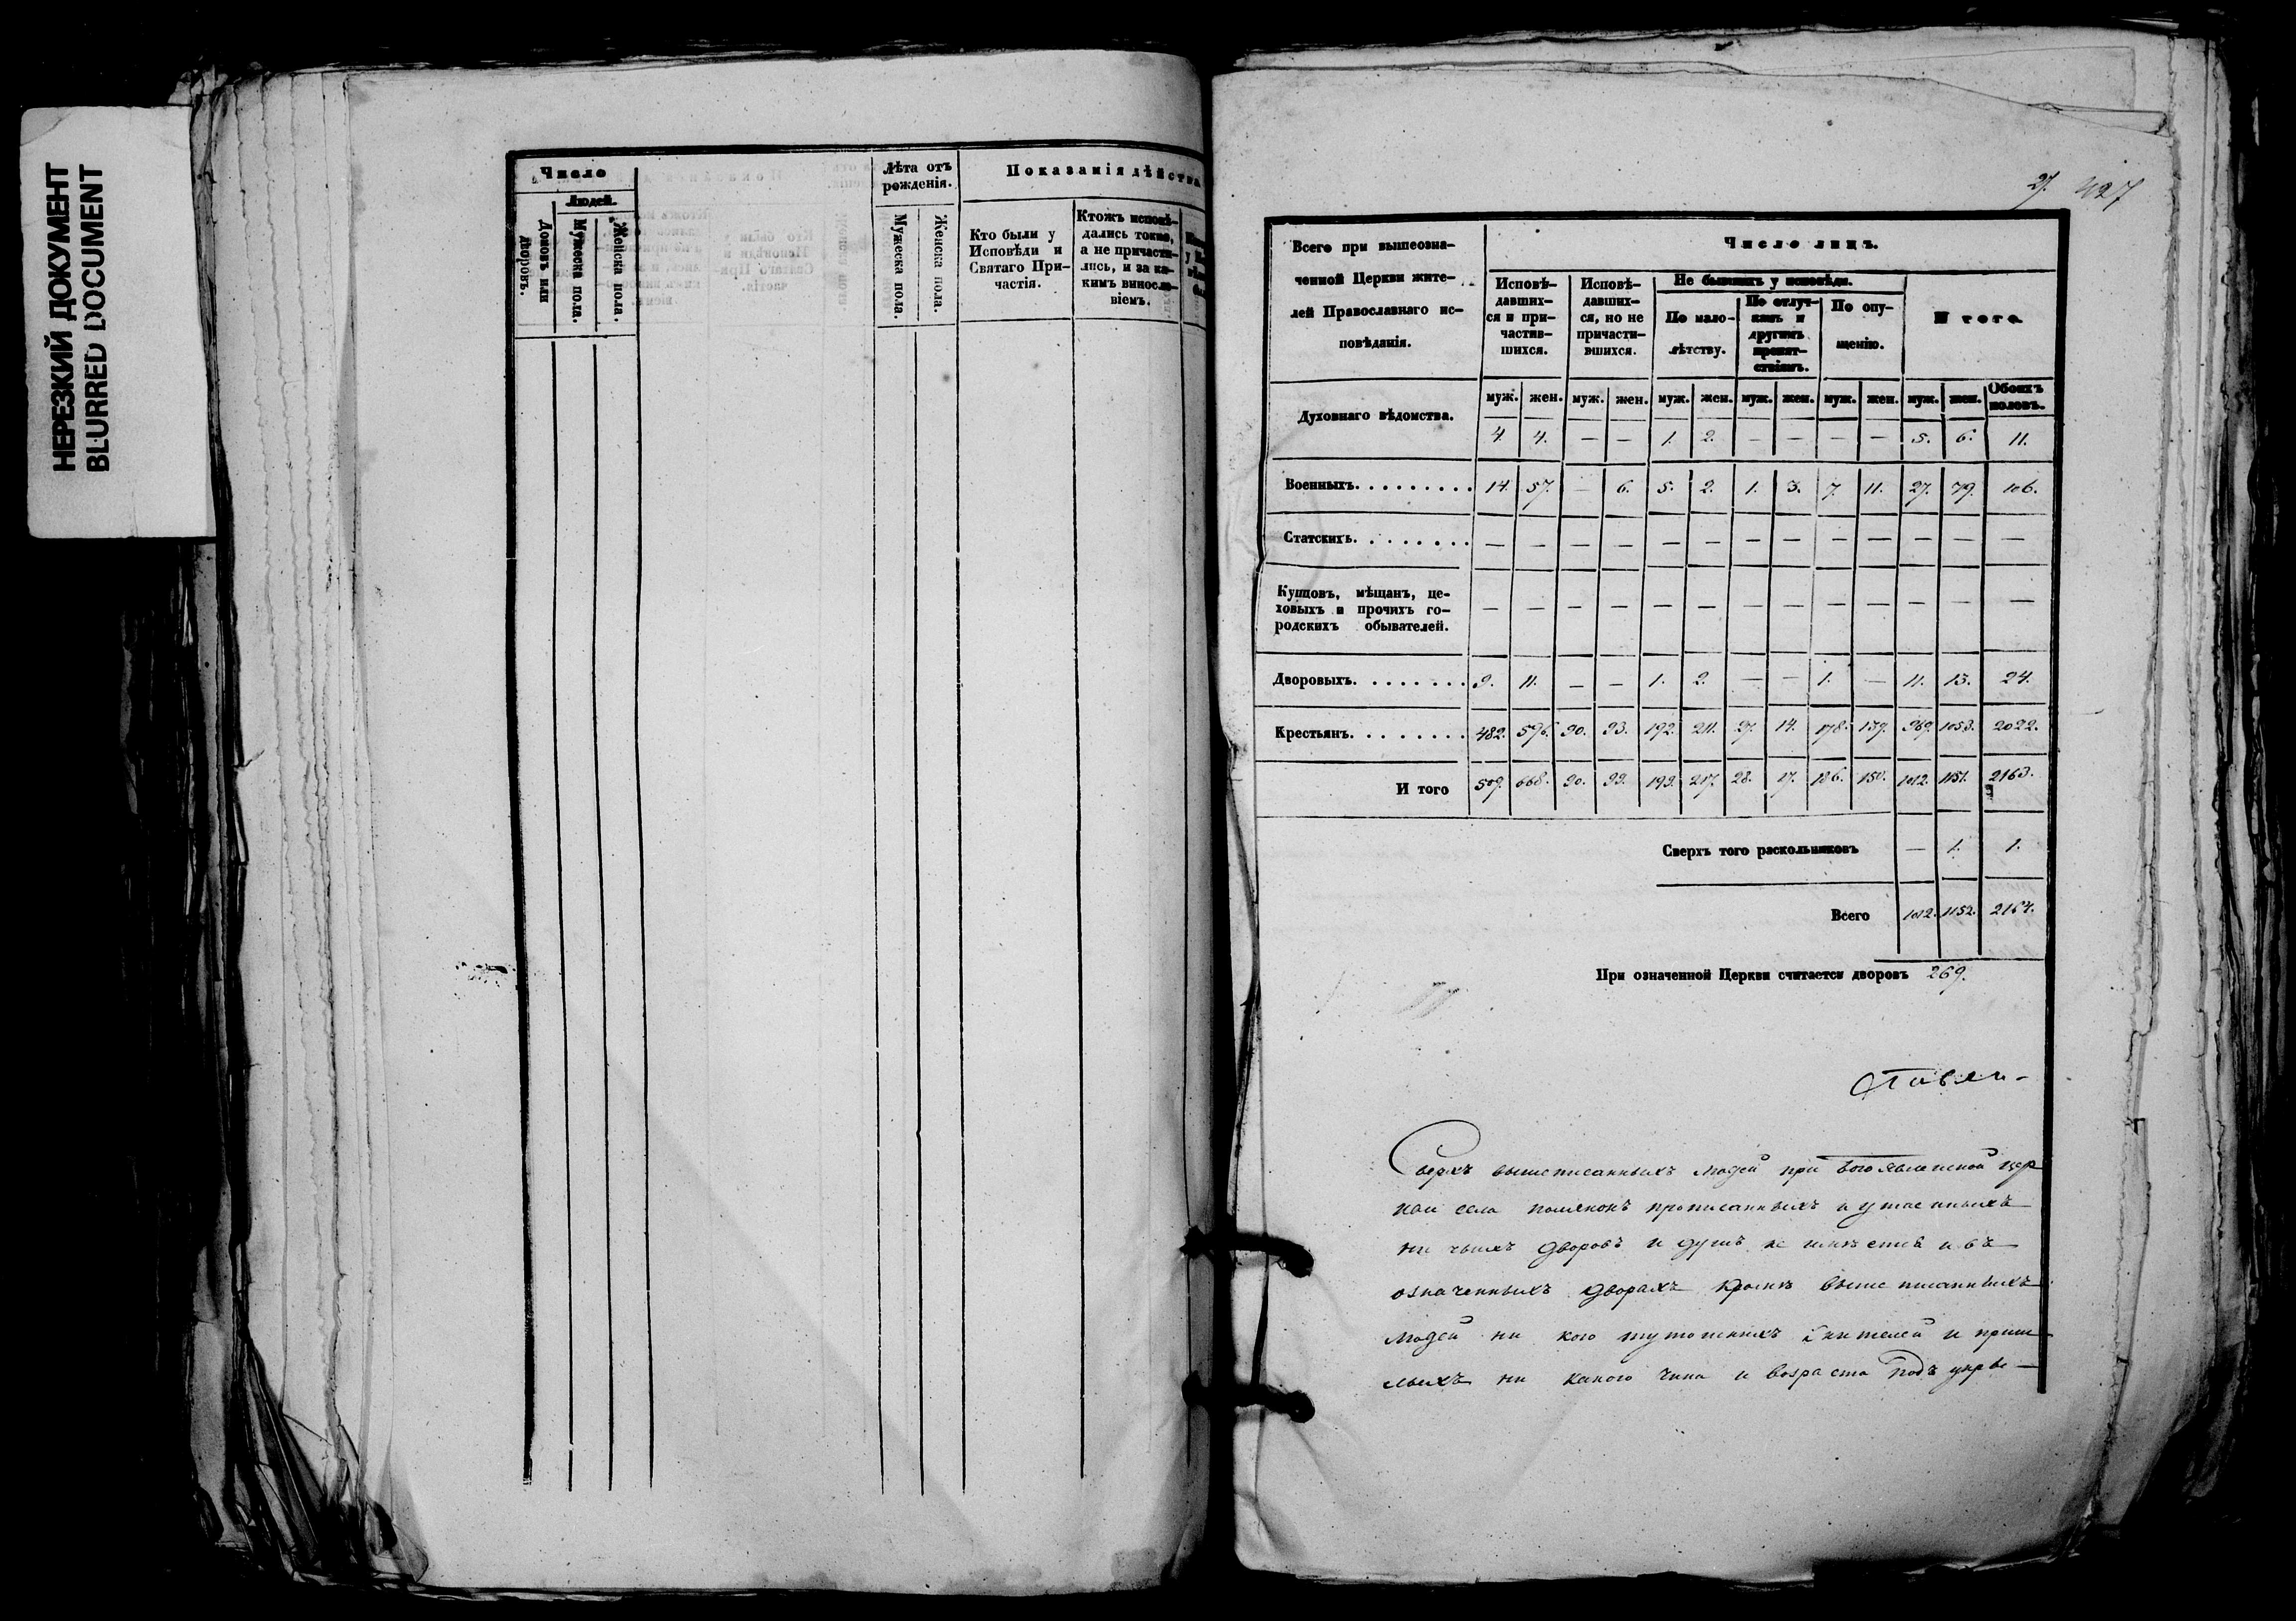 НЕРЕЗКИЙ ДОКУМЕНТ
BLURRED DOCUMENT
Число
Людей.
Домовъ или дворовъ.
Мужеска пола.
Женска пола.
Лѣта отъ рожденія.
Мужеска пола.
Женска пола.
Показанія дѣйства
Кто были у
Исповѣди и
Святаго При-
частія.
Ктожъ исповѣ-
дались токмо,
а не причасти-
лись, и за ка-
кимъ виносло-
віемъ.
27. 427
Всего при вышеозна-
ченной Церкви жите-
лей Православнаго ис-
повѣданія.
Число лицъ.
Исповѣ-
давших-
ся и при-
частив-
шихся.
Исповѣ-
давших-
ся, но не
причасти-
вшихся.
Не бывшихъ у исповѣди.
По мало-
лѣтству.
По отлуч-
камъ и
другимъ
препят-
ствіямъ.
По опу-
щенію.
Итого
муж. жен. муж. жен. муж. жен. муж. жен. муж. жен. муж. жен. Обоихъ половъ.
Духовнаго вѣдомства. 4. 4. — — 1. 2. — — — — 5. 6. 11.
Военныхъ. 14. 57. — 6. 5. 2. 1. 3. 7. 11. 27. 79. 106.
Статскихъ. — — — — — — — — — — — — —
Купцовъ, мѣщанъ, це-
ховыхъ и прочихъ го-
родскихъ обывателей. — — — — — — — — — — — — —
Дворовыхъ. 9. 11. — — 1. 2. — — 1. — 11. 13. 24.
Крестьянъ. 482. 596. 90. 93. 192. 211. 27. 14. 178. 139. 969. 1053. 2022.
И того 509. 668. 90. 99. 199. 217. 28. 17. 186. 150. 1012. 1151. 2163.
Сверхъ того раскольниковъ — 1. 1.
Всего 1012. 1152. 2164.
При означенной Церкви считается дворовъ 269.
Сверхъ вышеписанныхъ людей при Богоявленской цер
кви села прописанныхъ и утаенныхъ
ни чьихъ дворовъ и душъ не имѣется и въ
означенныхъ дворахъ кромѣ вышеписанныхъ
людей ни кого тутошнихъ жителей и приш
лыхъ ни какого чина и возраста подъ укры—